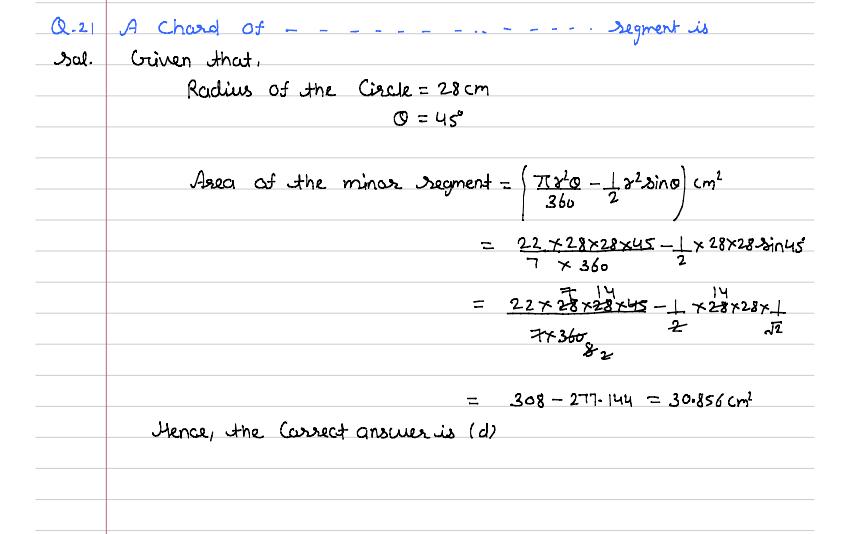 Q.21 A Chord of - - - - - - - .. - - - - - . segment is
Sol. Given that,
Radius of the Circle = 28 cm
θ = 45°
Area of the minor segment = (πr²θ/360 - 1/2 r² sinθ) cm²
= 22 × 28 × 28 × 45 / 7 × 360 - 1/2 × 28 × 28 sin 45°
= 22 × 28 × 28 × 45 / 7 × 360 - 1/2 × 28 × 28 × 1/√2
7 14 14
8 2
= 308 - 277.144 = 30.856 cm²
Hence, the Correct answer is (d)